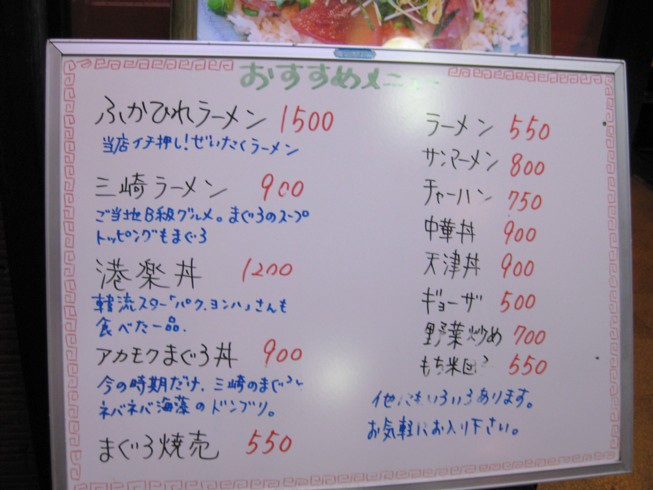 おすすめメニュー
ふかひれラーメン 1500
当店イチ押し!ぜいたくラーメン
三崎ラーメン 900
ご当地B級グルメ。まぐろのスープ
トッピングもまぐろ
港楽丼 1200
韓流スター「パク、ヨンハ」さんも
食べた一品.
アカモクまぐろ丼 900
今の時期だけ、三崎のまぐろと
ネバネバ海藻のドンブリ。
まぐろ焼売 550
ラーメン 550
サンマーメン 800
チャーハン 750
中華丼 900
天津丼 900
ギョーザ 500
野菜炒め 700
もち米団 550
他にもいろいろあります。
お気軽にお入り下さい。